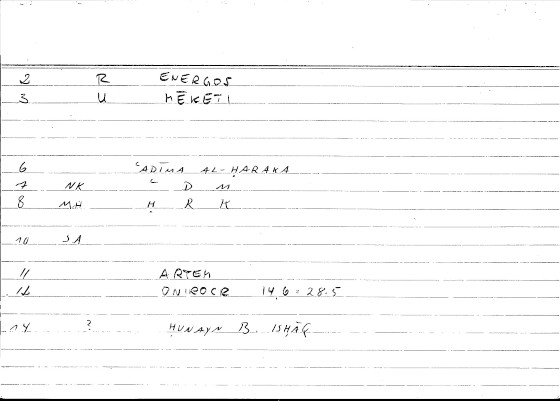 2 R ENERGOS
3 U MĒKETI
6 ʿADĪMA AL-ḤARAKA
7 NK ʿ D M
8 MH Ḥ R K
10 SA
11 ARTEM
12 ONIROCR 14,6 = 28.5
14 ? ḤUNAYN B. ISḤĀQ